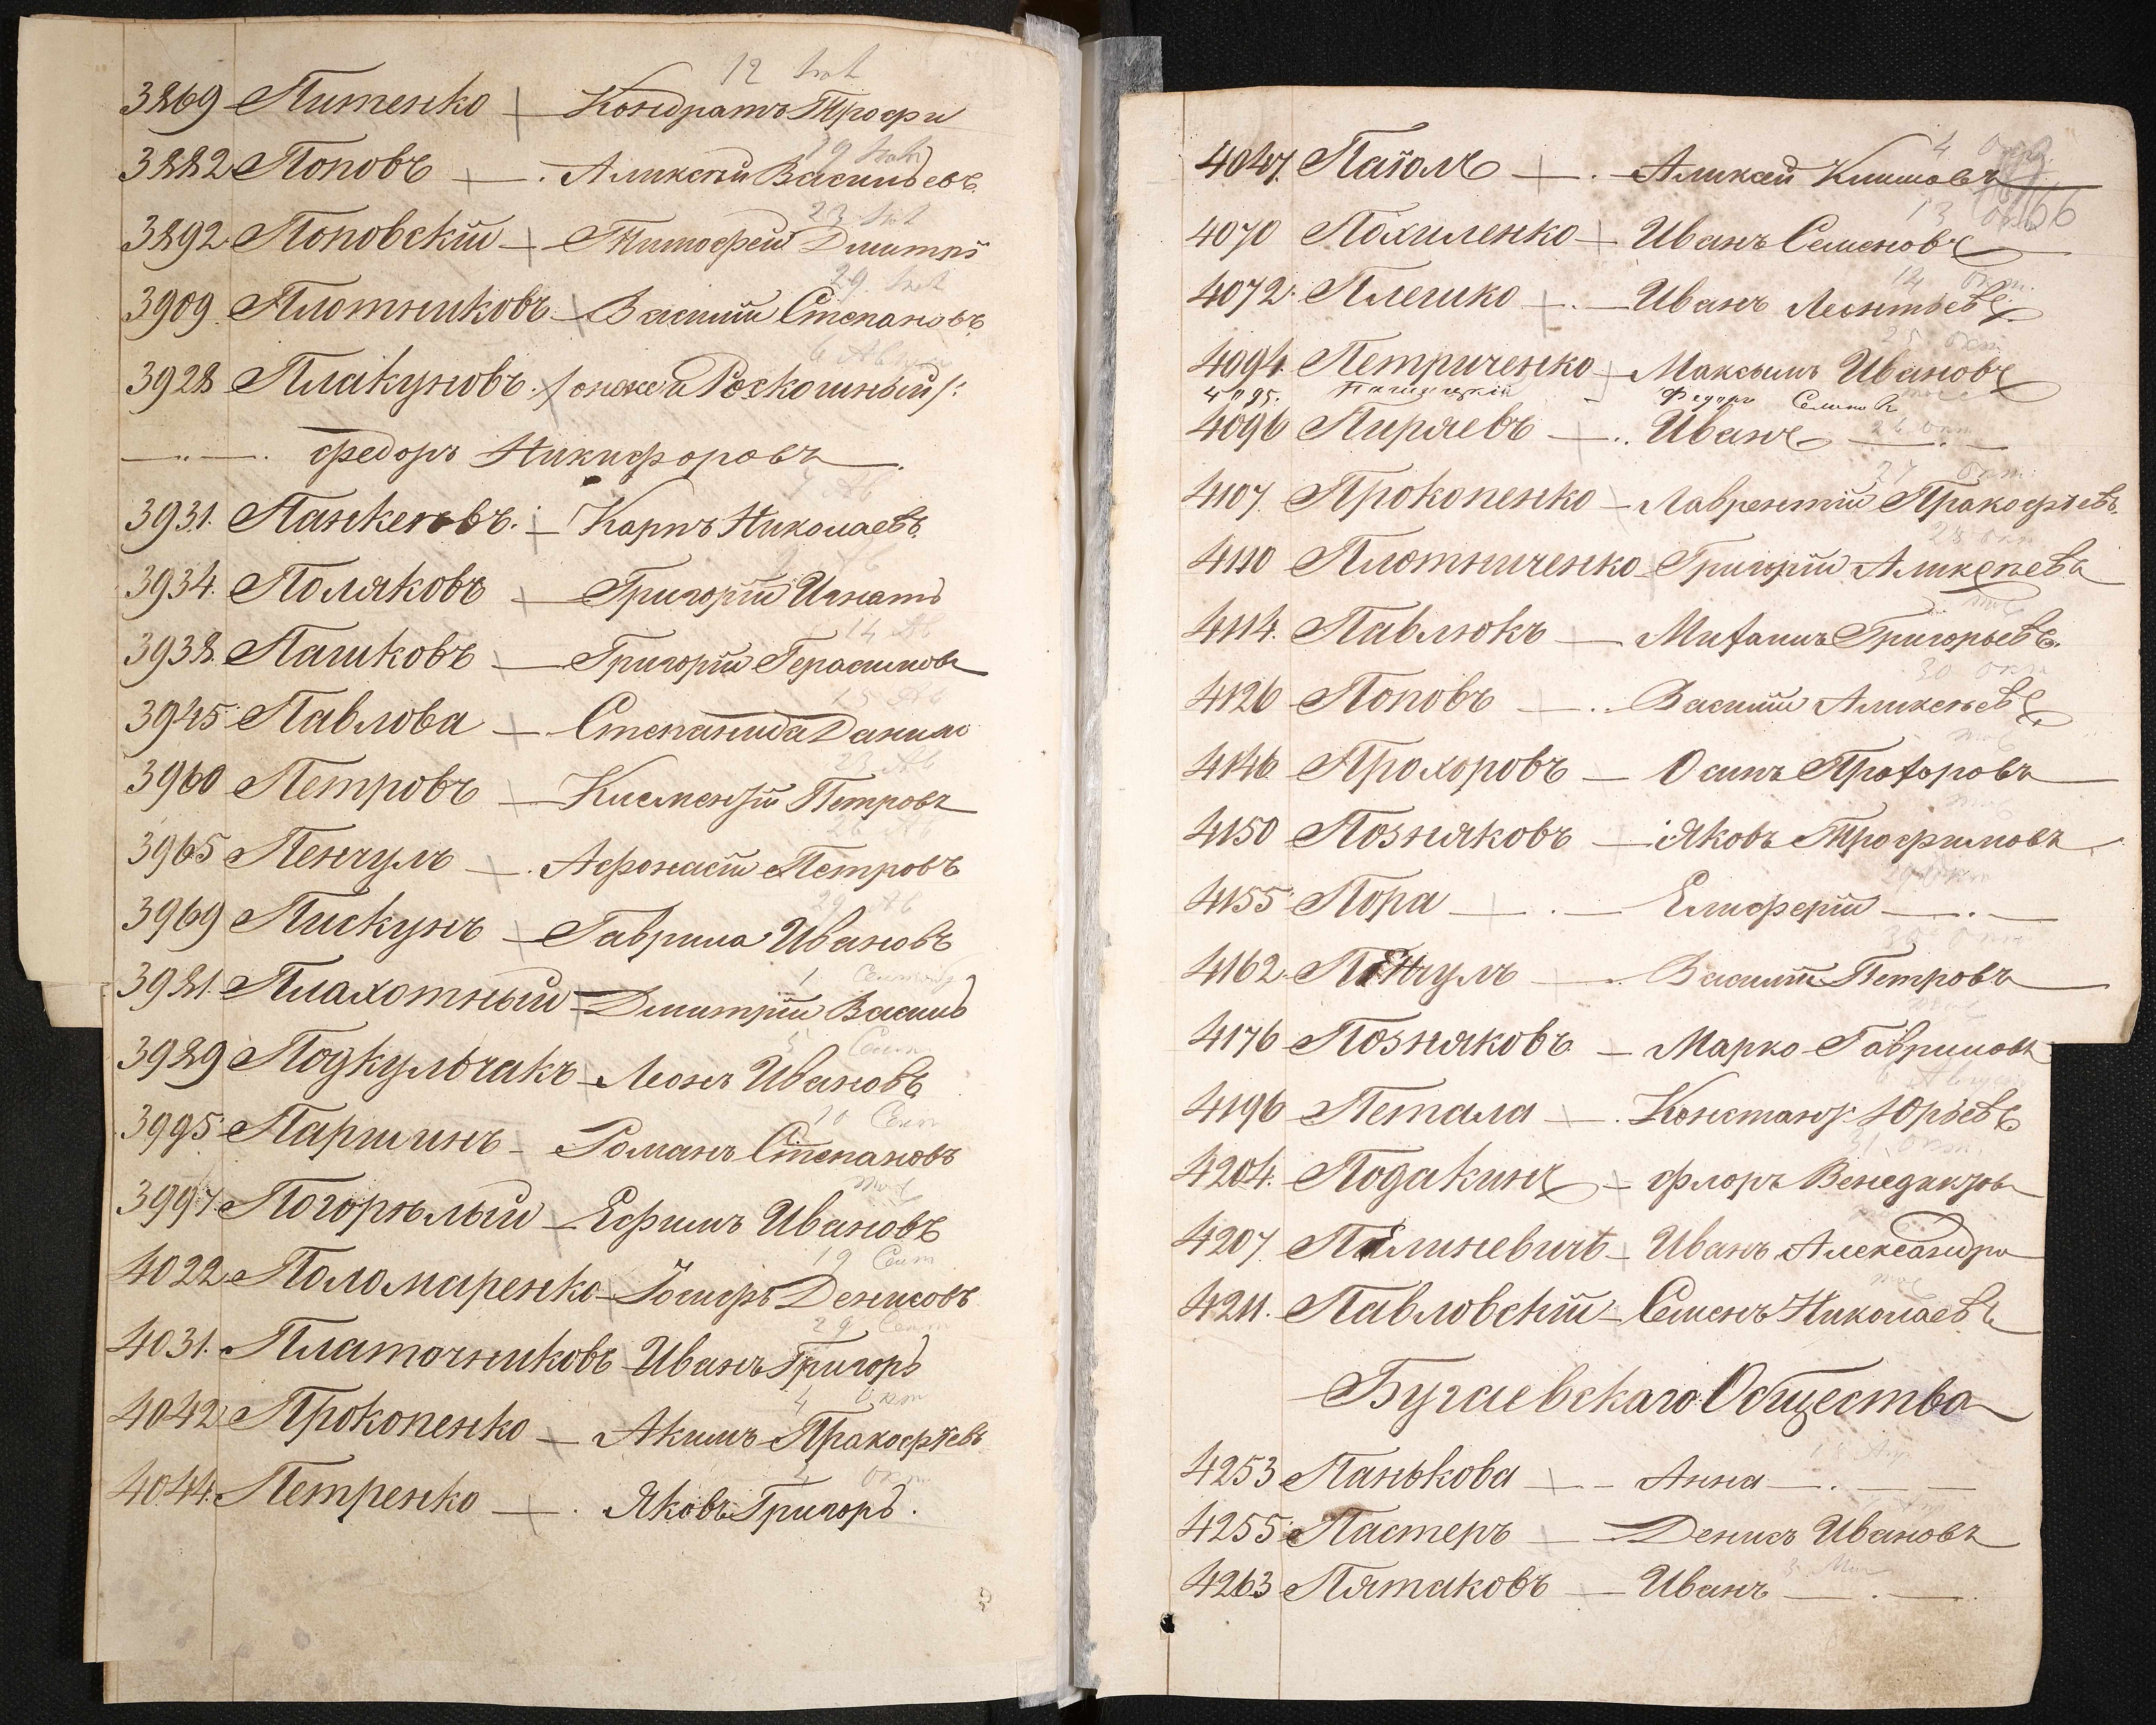 3869 Питенко — Кондратъ Трофи
3882 Поповъ — Аликсѣй Васильевъ
3892 Поповскій — Тимофей Дмитрі
3909 Плотниковъ — Василій Степановъ
3928 Плакуновъ /: онже и Роскошный /:
Федоръ Никифоровъ
3931. Панкеевъ — Карпъ Николаевъ
3934. Поляковъ — Григорій Игнать
3938 Пашковъ — Григорій Герасимовъ
3945 Павлова — Степанида Данило
3960 Петровъ — Клемензій Петровъ
3965 Пенчулъ — Афонасій Петровъ
3969 Пискунъ — Гаврила Ивановъ
3981. Плахотный — Дмитрій Василь
3989 Подкульчакъ — Леонъ Ивановъ
3995 Паршинъ — Романъ Степановъ
3997. Погорѣлый — Ефимъ Ивановъ
4022 Поломаренко — Іосифъ Денисовъ
4031. Платочниковъ Иванъ Григорь
4042 Прокопенко — Акимъ Пракофѣевъ
4044. Петренко — Яковъ Григорь.
4 окт
4047. — Аликсей Климовъ
166
13
4070 Похиленко — Иванъ Семеновъ
4072. Плешко — Иванъ Леонтьевъ
25 окт
4094. Петриченко — Максымъ Ивановъ
4095. Федоръ Семинов
4096 Пиряевъ — Иванъ 26 окт
27 окт
4107. Прокопенко — Лаврентій Пракофѣевъ
28 окт
4110 Плотниченко Григорій Аликсѣевъ
4114. Павлюкъ — Митанъ Григорьевъ.
30 окт
4126 Поповъ — Василій Аликсѣевъ
4146 Прохоровъ — Осипъ Прохоровъ
4150 Позняковъ — Яковъ Трофимовъ
4155 Пора — Елиферій
30 окт
4162 Пенчулъ — Василій Петровъ
4176 Позняковъ — Марко Гавриловъ
4196 Петала — Констанз: Юрьевъ
31 окт.
4204. Подакинъ — Флоръ Венедикзов
4207. Пелиневичъ — Иванъ Александро
4211. Павловскій — Семенъ Николаевъ
Бугаевскаго Общества
4253 Панькова — Анна
4255 Пастеръ — Денисъ Ивановъ
4263 Пятаковъ — Иванъ